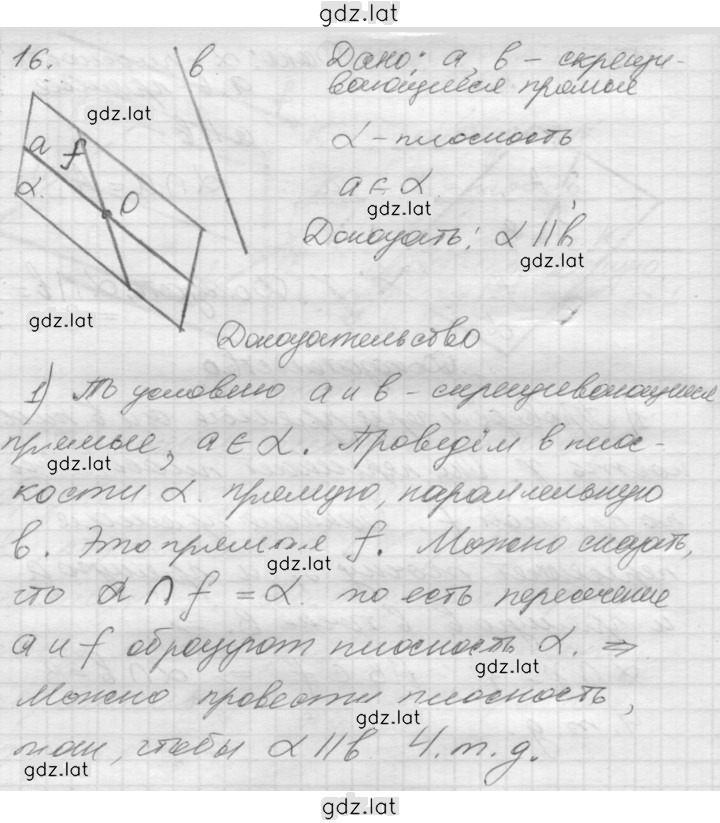 gdz.lat
16.
в
Дано: а, в - скрещи-
вающиеся прямые
gdz.lat
а
f
α - плоскость
α
O
а ∈ α
gdz.lat
Доказать: α || в
gdz.lat
gdz.lat
Доказательство
1) По условию а и в - скрещивающиеся
прямые, а ∈ α. Проведём в плос-
gdz.lat
кости α. прямую, параллельную
в. Это прямая f. Можно сказать,
gdz.lat
что α ∩ f = α. то есть пересечение
а и f образуют плоскость α. ⇒
gdz.lat
Можно провести плоскость,
gdz.lat
так, чтобы α || в Ч.т.д.
gdz.lat
gdz.lat